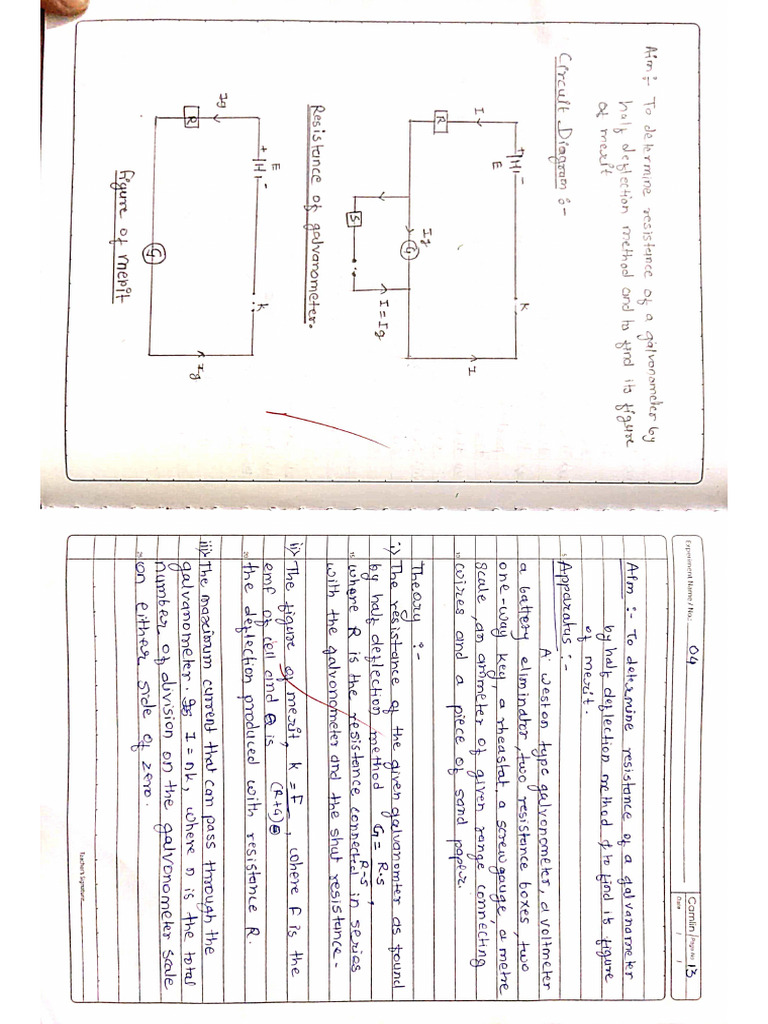 Aim :- To determine resistance of a galvanometer by
half deflection method and to find its figure
of merit
Circuit Diagram :-
E
K
I
R
I
Ig
G
S
I = Ig
Resistance of galvanometer.
E
K
Ig
R
G
Ig
figure of merit
Experiment Name / No.: 04
Camlin Page No. 13
Date / /
Aim :- To determine resistance of a galvanometer
by half deflection method & to find its figure
of merit.
5 Apparatus :-
A weston type galvonometer, a voltmeter
a battery eliminator, two resistance boxes, two
one-way key, a rheastat, a screw gauge, a metre
scale, an ammeter of given range connecting
10 wires and a piece of sand paper.
Theory :-
i> The resistance of the given galvanomter as found
by half deflection method G = R.S / R-S ,
15 where R is the resistance connected in series
with the galvonometer and the shut resistance.
ii> The figure of merit, k = E / (R+G)θ , where E is the
emf of cell and θ is
20 the deflection produced with resistance R.
iii> The maximum current that can pass through the
galvanometer. I = nk, where n is the total
number of division on the galvonometer scale
25 on either side of zero.
Teacher's Signature